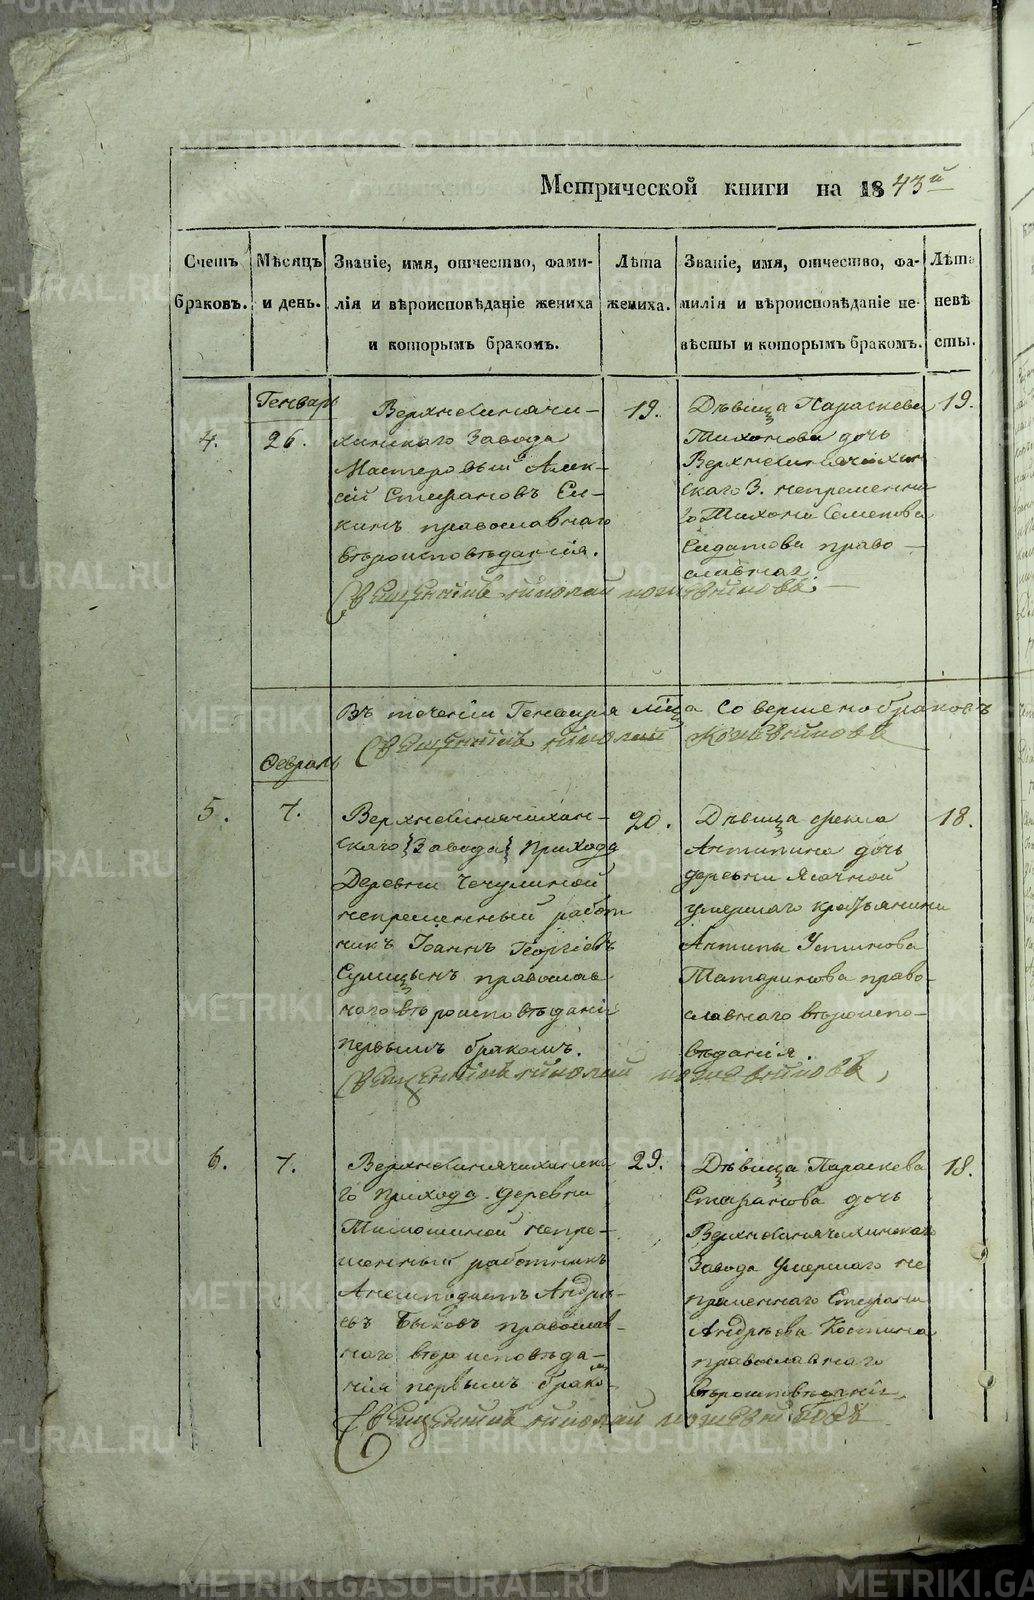 Метрической книги на 1843й
Счетъ браковъ.
Мѣсяцъ и день.
Званіе, имя, отчество, фами-
лія и вѣроисповѣданіе жениха
и которымъ бракомъ.
Лѣта жениха.
Званіе, имя, отчество, фа-
милія и вѣроисповѣданіе не-
вѣсты и которымъ бракомъ.
Лѣта невѣ
сты.
Генварь
4.
26.
Верхнесинячи-
хинскаго Завода
Мастеровый Алек-
сѣй Стефановъ
кинъ православнаго
вѣроисповѣданія.
19.
Дѣвица Параскева
Тихонова дочь
Верхнесинячихин
скаго З. непременна
го Тихона Семенова
право-
славнаг
19.
Священникъ Николай
Въ теченіи Генваря мца совершено браковъ
Священникъ Николай
Февраль
5.
7.
Верхнесинячихин-
скаго {Завода} прихода
Деревни Чечулиной
непременный работ
никъ Іоаннъ Георгіевъ
православ
наго вѣроисповѣдані
первымъ бракомъ.
20.
Дѣвица
Антипина дочь
деревни Ясачной
умершаго крестьянина
Антипы Устинова
Татаринова право-
славнаго вѣроиспо-
вѣданія.
18.
Священникъ Николай
6.
7.
Верхнесинячихинска
го прихода деревни
Тимошиной непре-
менный работникъ
Андрѣ-
евъ Быковъ православ-
наго вѣроисповѣда-
нія первымъ брако-
29.
Дѣвица Параскева
Стефанова дочь
Верхнесинячихинскаго
Завода умершаго не
пременнаго Стефана
Андрѣева Костина
православнаго
вѣроисповѣдані
18.
Священникъ Николай
METRIKI.GASO-URAL.RU